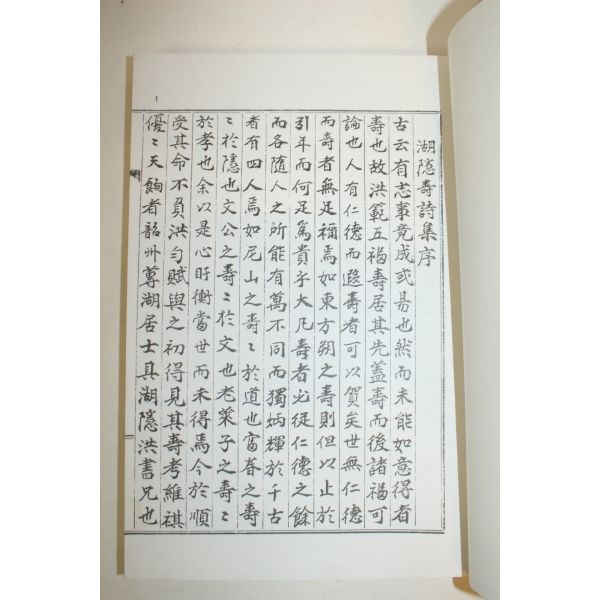 1
湖隱壽詩集序
古云有志事竟成或易也然而未能如意得者
壽也故洪範五福壽居其先蓋壽而後諸福可
論也人有仁德而遐壽者可以賀矣世無仁德
而壽者無足稱焉如東方朔之壽則但以止於
引年而何足篤貴乎大凡壽者必從仁德之餘
而各隨人之所能有萬不同而獨炳輝於千古
者有四人焉如尼山之壽〻於道也富春之壽
〻於隱也文公之壽〻於文也老萊子之壽〻
於孝也余以是心盱衡當世而未得焉今於順
受其命不負洪勻賦與之初得見其壽考維祺
優〻天餉者韶州尊湖居士具湖隱洪書兄也